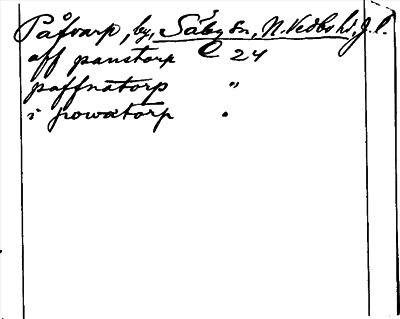 Påtorp, by, Säby sn, N. Vedbo hd, J. l.
aff panstorp C 24
paffnatorp "
i powatorp "